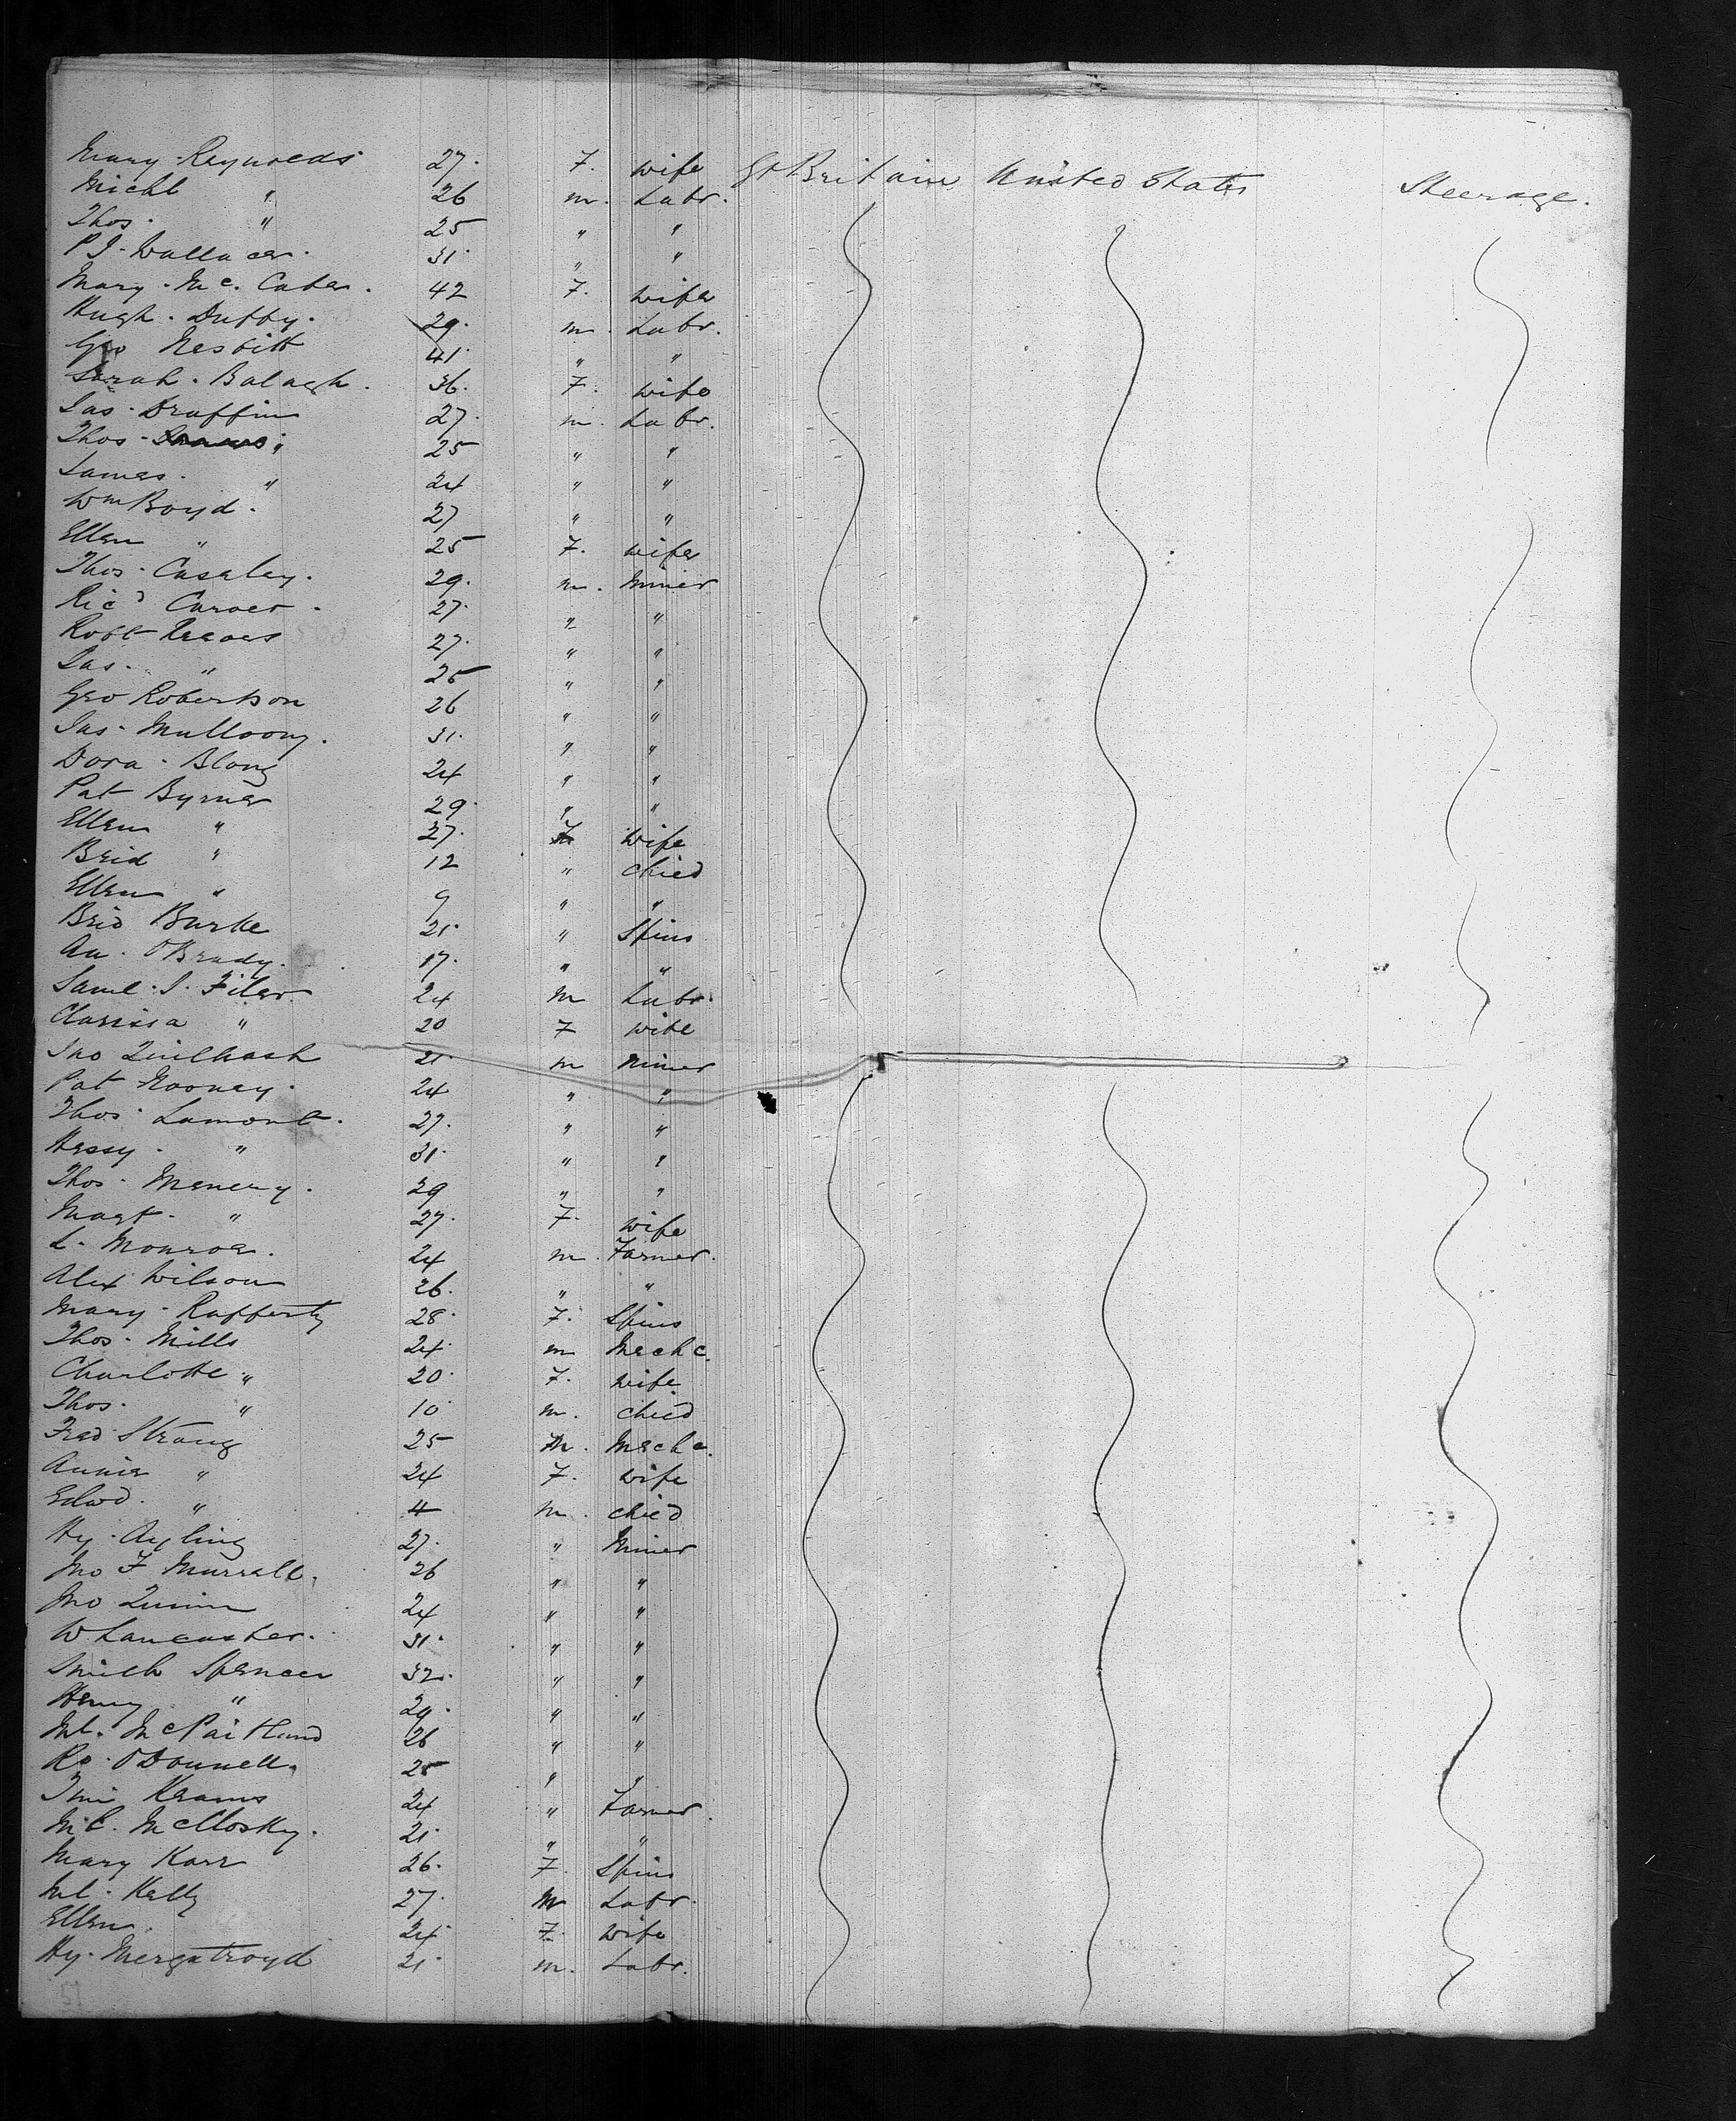 Mary Reynolds 27 F. wife Gt Britain United States Steerage.
Michl " 26 m. Labr.
Thos. " 25 " "
P J Wallace. 31 " "
Mary Mc. Cabe. 42 F. wife
Hugh Duffy. 29. m. Labr.
Geo Nesbitt 41 " "
Sarah Balagh. 36. F. wife
Jas. Draffin 27. m. Labr.
Thos " 25 " "
James. " 24 " "
Wm Boyd. 27 " "
Ellen " 25 F. wife
Thos. Casaley. 29. m. miner
Ricd Carver. 27. " "
Robt Reeves 27. " "
Jas. " 25 " "
Geo Robertson 26 " "
Jas. Mulloony. 31. " "
Dora Blong 24 " "
Pat Byrne 29. " "
Ellen " 27. F wife
Brid " 12 " Child
Ellen " 9 " "
Brid Burke 21. " Spins
An. O'Brady. 17. " "
Saml. J. Filer. 24 m Labr.
Clarissa " 20 F wife
Jno 21. m miner
Pat Rooney. 24 " "
Thos. Lamont. 27. " "
Hessy. " 31. " "
Thos. Menery. 29 " "
Magt. " 27. F. wife
L. Monroe. 24 m. Farmer.
Alex Wilson 26. " "
Mary Rafferty 28. F. Spins
Thos. Mills 24. m Mechc.
Charlotte " 20. F. wife
Thos. " 10 m. Child
Fred Strong 25 m. Mechc.
Annie " 24 F. wife
Edwd. " 4 m. Child
Hy. Ayling 27. " Miner
Jno F Murrall. 26 " "
Jno Quinn 24 " "
W Lancaster. 31. " "
Smith Spencer 32. " "
Henry " 29. " "
Ml. McPartland 26 " "
Ro. O'Donnell. 25 " "
Tim Keams 24 " Farmer.
Ml. McClosky. 21. " "
Mary Karr 26. F. Spins
Ml. Kelly 27. m Labr.
Ellen. 24 F. wife
Hy. Mergatroyd 21. m. Labr.